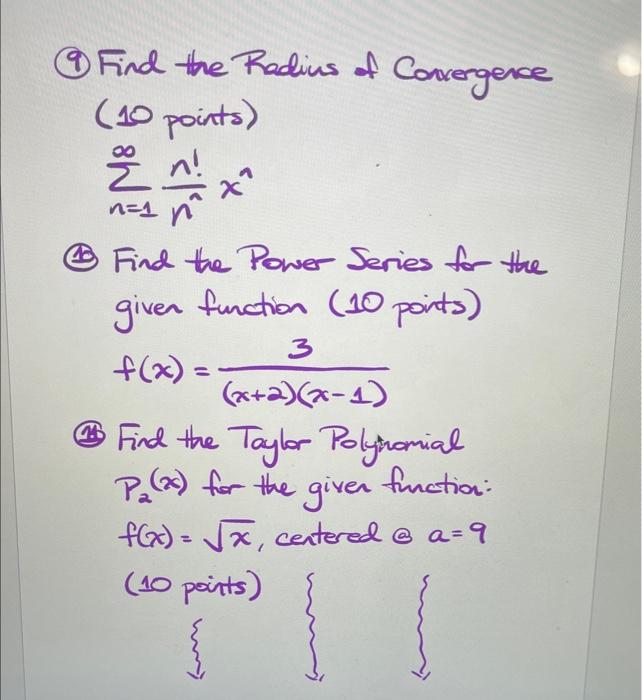 ⑨ Find the Radius of Convergence
(10 points)
∞
∑ n!/nⁿ xⁿ
n=1
⑩ Find the Power Series for the
given function (10 points)
f(x) = 3/((x+2)(x-1))
⑪ Find the Taylor Polynomial
P₂(x) for the given function:
f(x) = √x, centered @ a=9
(10 points)